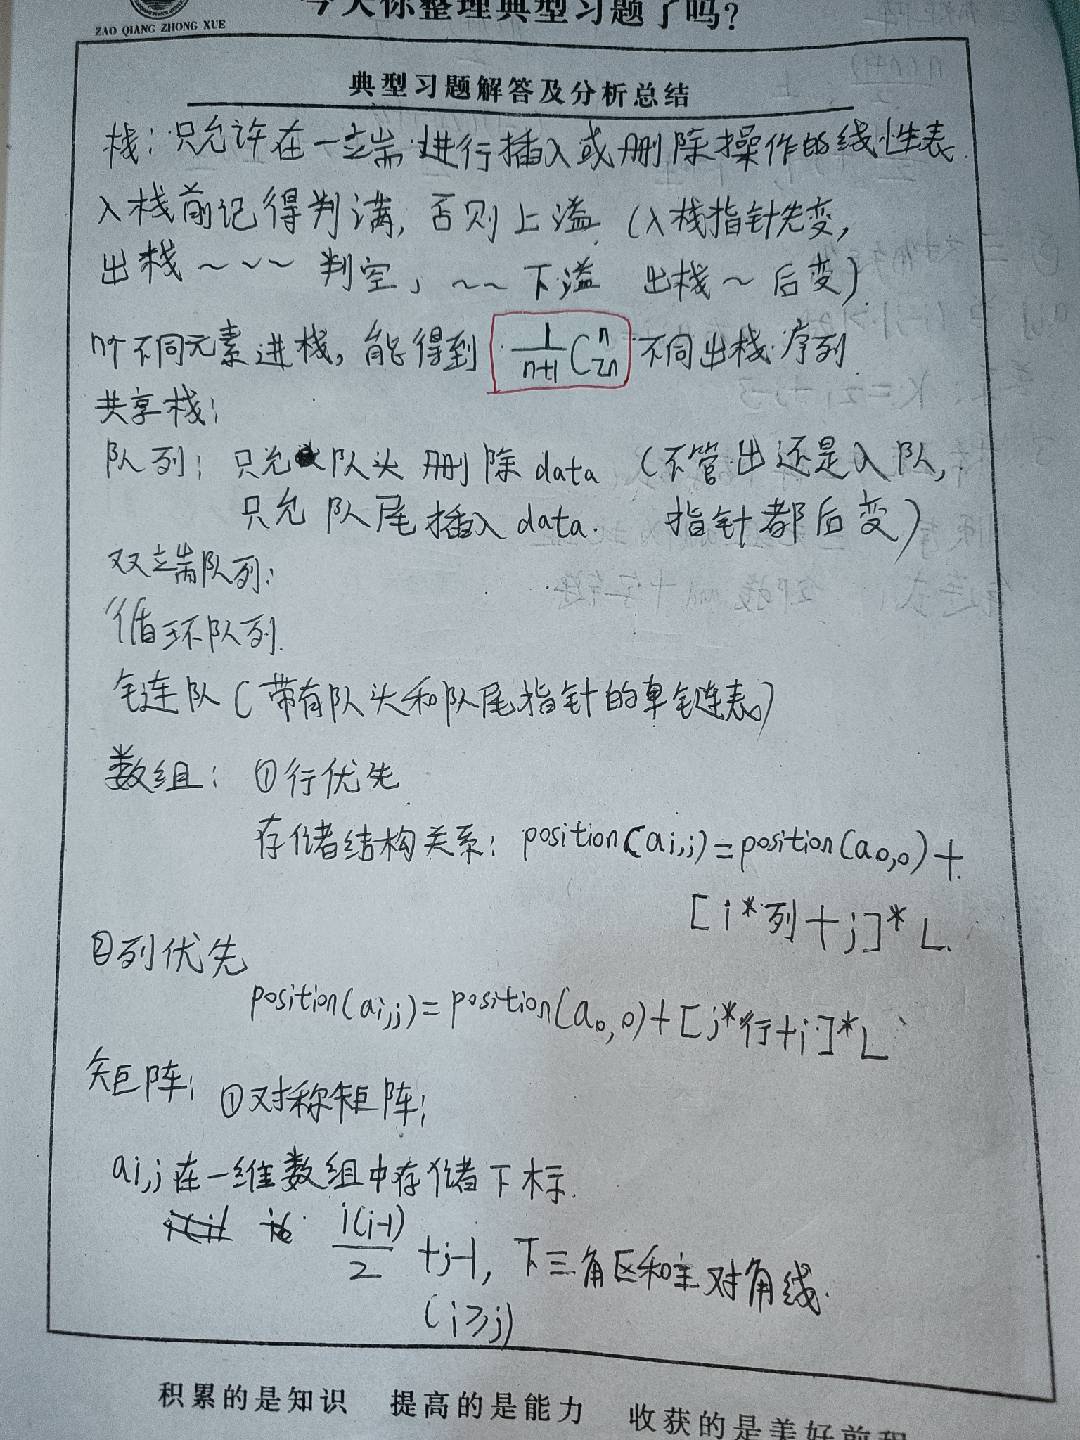 今天你整理典型习题了吗?
ZAO QIANG ZHONG XUE
典型习题解答及分析总结
栈:只允许在一端进行插入或删除操作的线性表.
入栈前记得判满,否则上溢 (入栈指针先变,
出栈~~~判空,~~下溢 出栈~后变)
n个不同元素进栈,能得到 \frac{1}{n+1}C_{2n}^{n} 不同出栈序列.
共享栈:
队列:只允队头删除data (不管出还是入队,
只允队尾插入data. 指针都后变)
双端队列:
循环队列.
链队(带有队头和队尾指针的单链表。)
数组: ①行优先
存储结构关系: position(ai,j)=position(a0,0)+
[i*列+j]*L.
②列优先
position(ai,j)=position(a0,0)+[j*行+i]*L
矩阵: ①对称矩阵:
ai,j在一维数组中存储下标.
\frac{i(i-1)}{2}+j-1, 下三角区和主对角线.
(i≥j)
积累的是知识 提高的是能力 收获的是美好前程